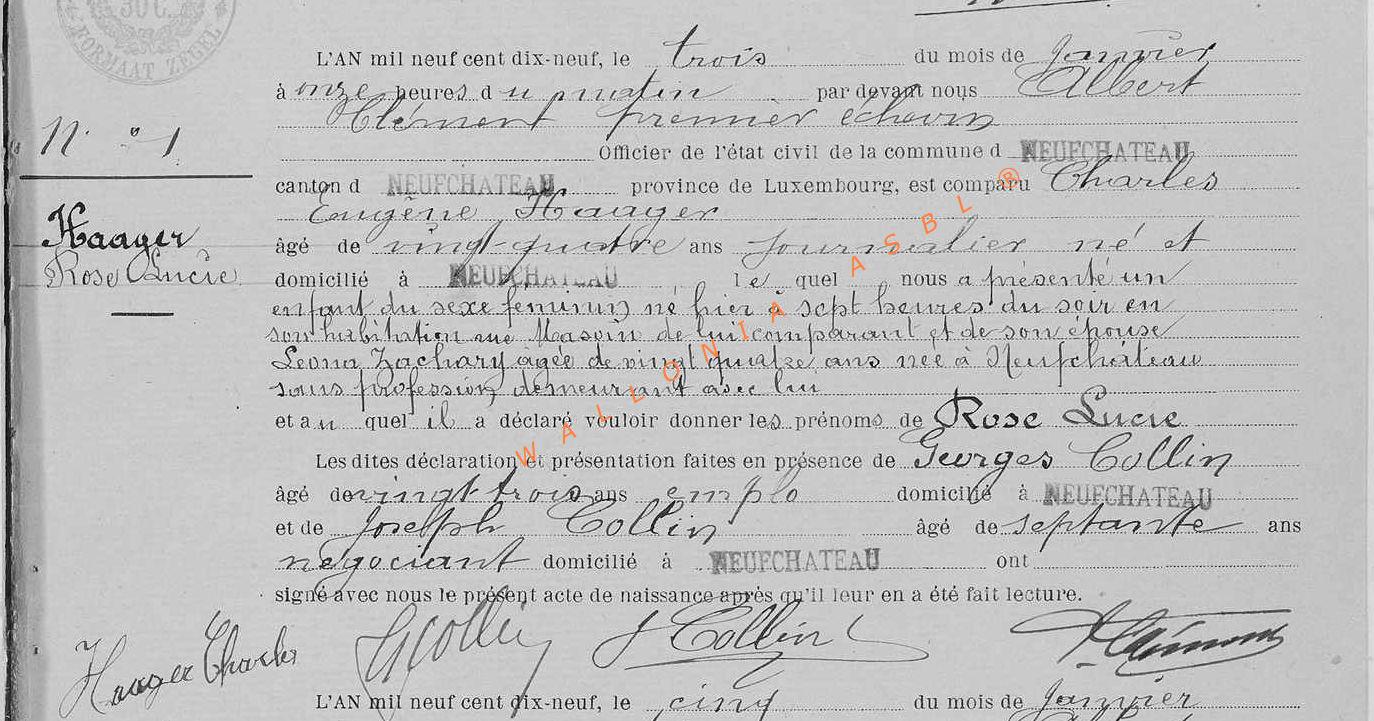 30 C.
FORMAAT ZEGEL
L'AN mil neuf cent dix-neuf, le trois du mois de Janvier
à onze heures du matin par devant nous Albert
Clément premier échevin
N° 1
Officier de l'état civil de la commune d NEUFCHATEAU
canton d NEUFCHATEAU province de Luxembourg, est comparu Charles
Eugène Haager
Haager
Rose Lucie
âgé de vingt-quatre ans journalier né et
domicilié à NEUFCHATEAU lequel nous a présenté un
enfant du sexe feminin né hier à sept heures du soir en
son habitation rue de lui comparant et de son épouse
Leona Zachary agée de vingt quatre ans née à Neufchâteau
sans profession demeurant avec lui
et au quel il a déclaré vouloir donner les prénoms de Rose Lucie
Les dites déclaration et présentation faites en présence de Georges Collin
âgé de vingt-trois ans emplo domicilié à NEUFCHATEAU
et de Joseph Collin âgé de septante ans
négociant domicilié à NEUFCHATEAU ont
signé avec nous le présent acte de naissance après qu'il leur en a été fait lecture.
Haager Charles
GCollin
J Collin
WALLONIA ASBL ®
L'AN mil neuf cent dix-neuf, le cinq du mois de Janvier